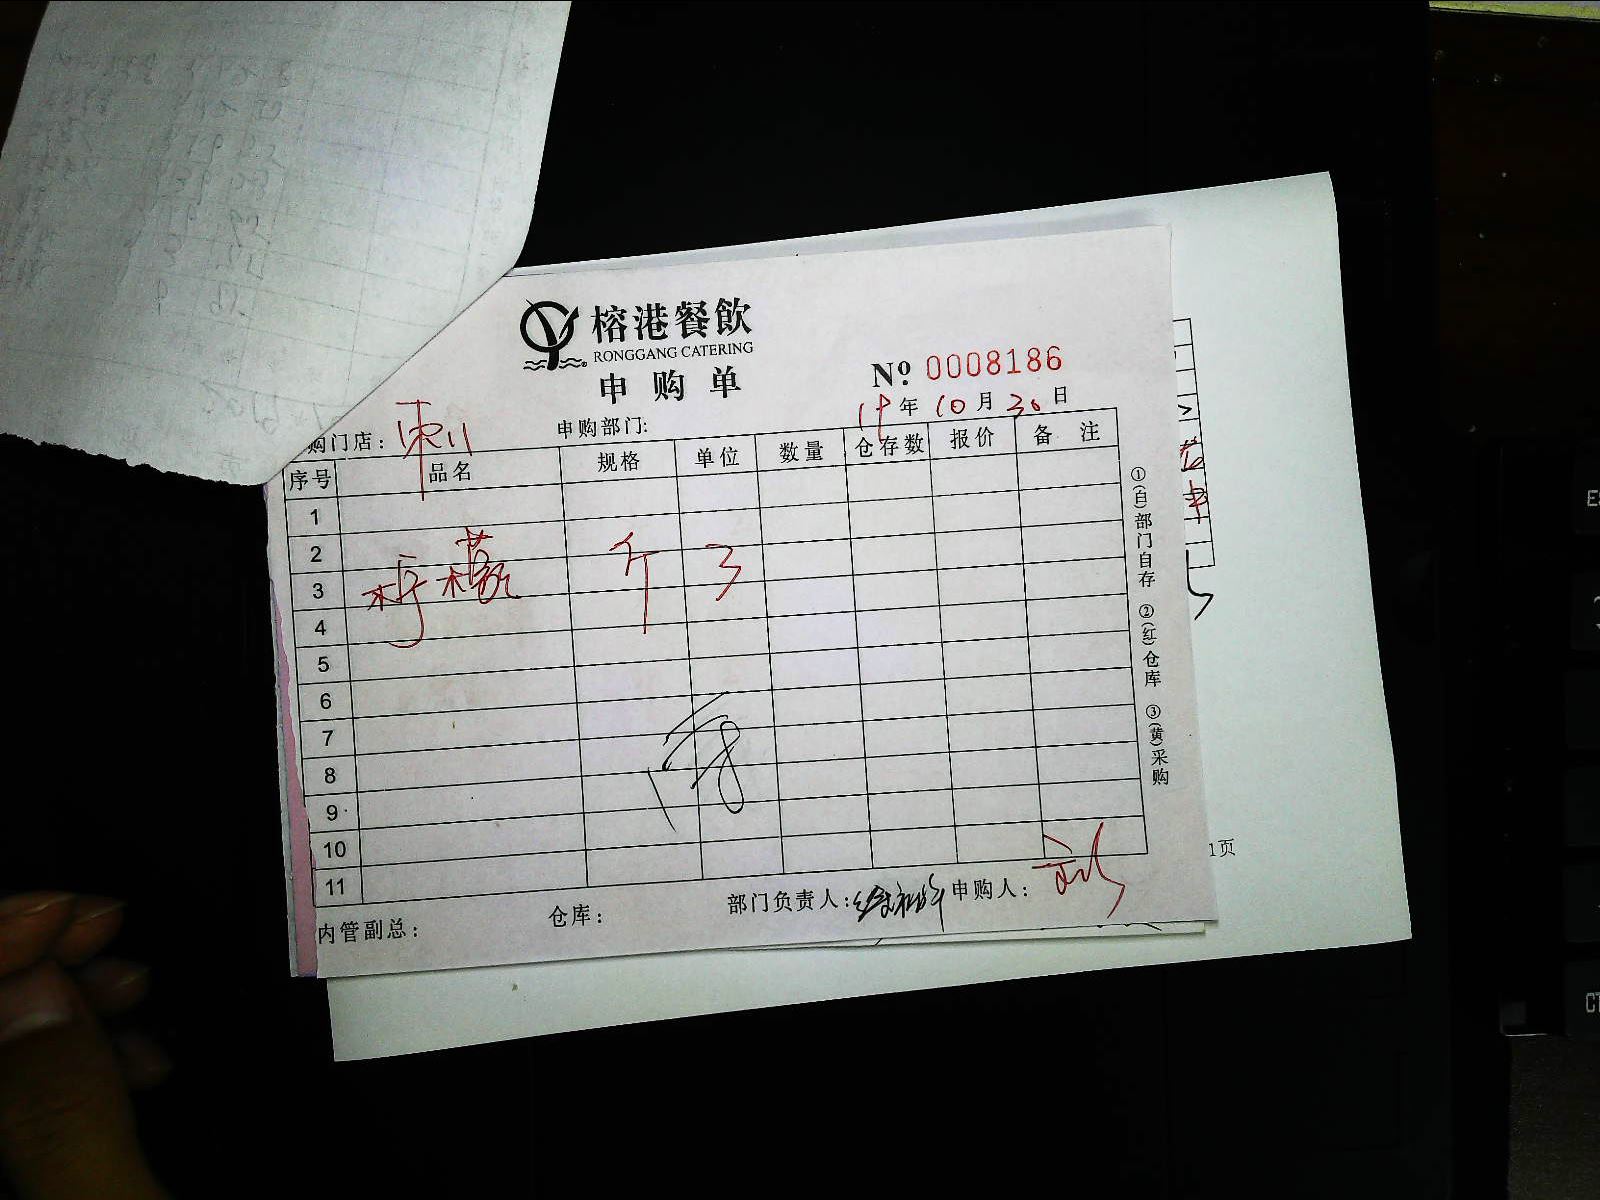 榕港餐飲
RONGGANG CATERING
申购单
№ 0008186
19年10月30日
购门店：
申购部门:
序号 品名 规格 单位 数量 仓存数 报价 备注
1
2
3 柠檬 斤 3
4
5
6
7
8
9
10
11
①(白)部门自存 ②(红)仓库 ③(黄)采购
内管副总： 仓库： 部门负责人： 申购人：
1页